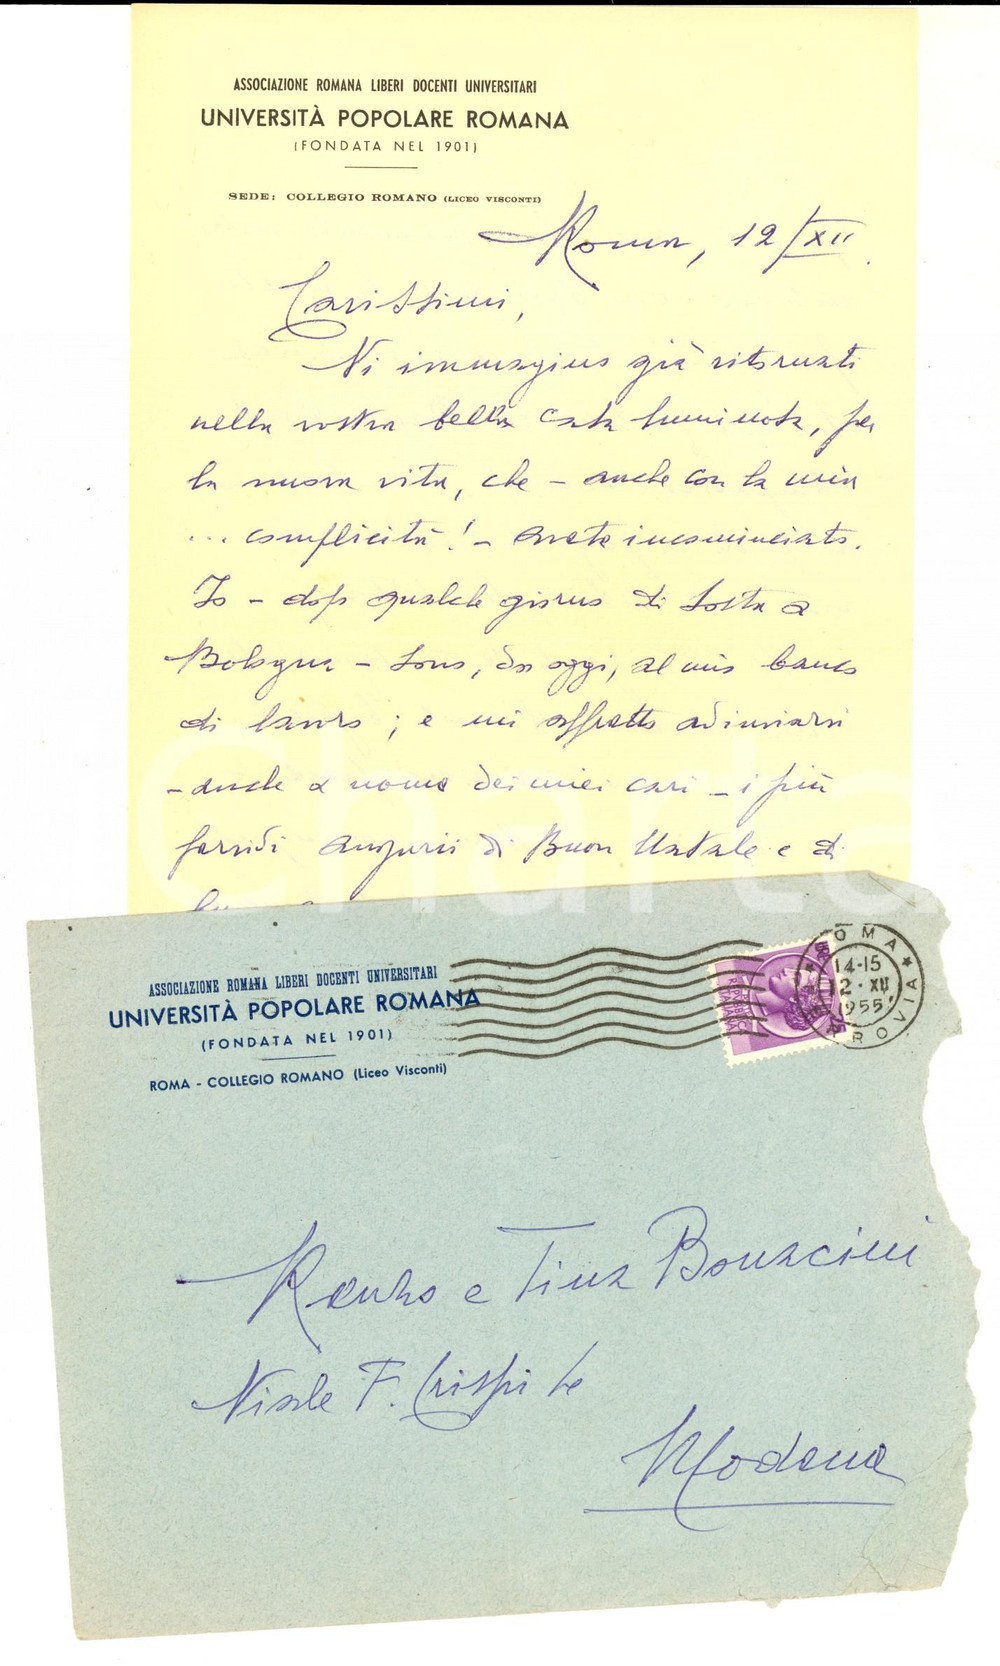 ASSOCIAZIONE ROMANA LIBERI DOCENTI UNIVERSITARI
UNIVERSITÀ POPOLARE ROMANA
(FONDATA NEL 1901)
SEDE: COLLEGIO ROMANO (LICEO VISCONTI)
Roma, 12/XII
Carissimi,
Vi immagino già ritornati
nella vostra bella casa luminosa, per
la nuova vita, che - anche con la mia
... complicità! - avete incominciato.
Io - dopo qualche giorno di sosta a
Bologna - sono, da oggi, al mio banco
di lavoro; e mi affretto ad inviarvi
- anche a nome dei miei cari - i più
fervidi auguri di Buon Natale e di
ASSOCIAZIONE ROMANA LIBERI DOCENTI UNIVERSITARI
UNIVERSITÀ POPOLARE ROMANA
(FONDATA NEL 1901)
ROMA - COLLEGIO ROMANO (Liceo Visconti)
ROMA
14-15
12·XII
1955
FERROVIA
Renzo e Tina Bonacini
Viale F. Crispi
Modena
Charta